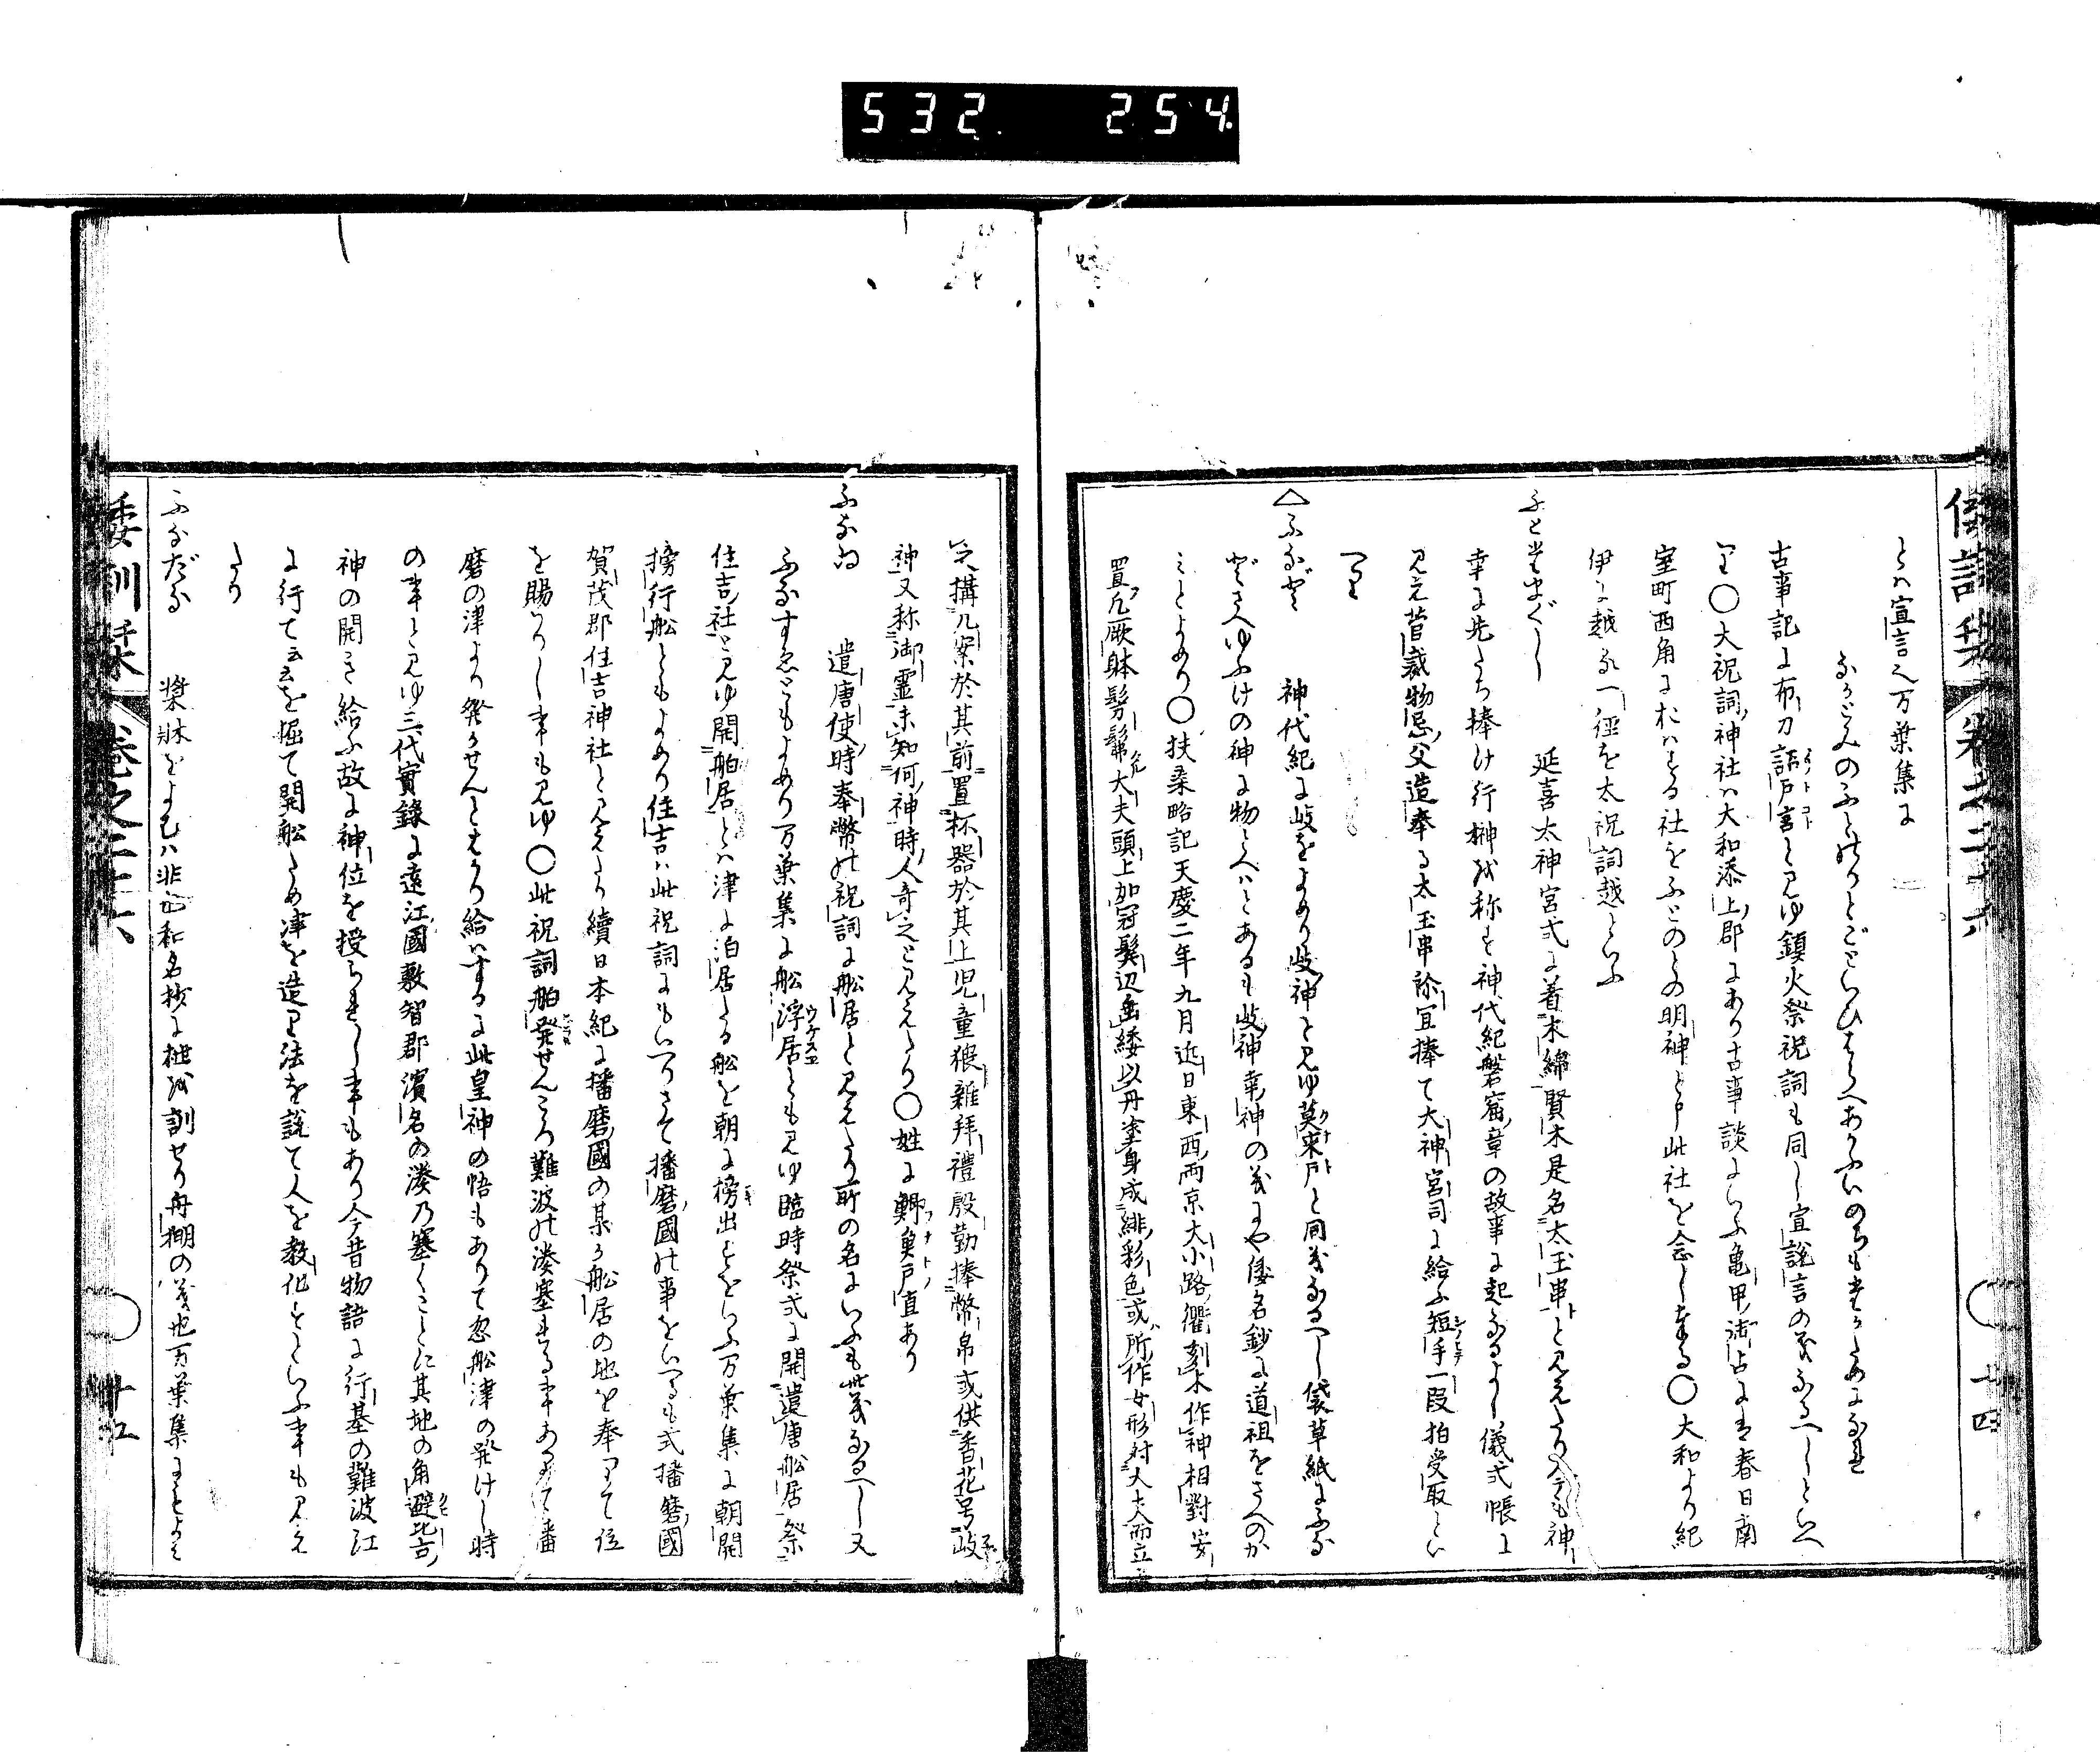 532. 254.
倭訓栞 卷之二十六 十四
とハ宣言也万葉集に
なかとみのふとのりとごといひはらへあかふいのちもたかためになれ
古事記に布刀詔戸言と見ゆ鎮火祭祝詞も同し宣說言の義なるへしといへ
り〇大祝詞神社ハ大和添上郡にあり古事談にいふ亀甲御占にハ春日南
室町西角におハする社をふとのとの明神と申此社を念し奉る〇大和より紀
伊に越る一徑を太祝詞越といふ
ふとたまぐし 延喜太神宮式に着木綿賢木是名太玉串と見えたり今も神
幸に先たち捧け行榊を称す神代紀磐窟章の故事に起るよし儀式帳に
見え菅裁物忌父造奉る太玉串祢宜捧て大神宮司に給ふ短手一段拍受取とい
へり
△ふなど 神代紀に岐をよめり岐神と見ゆ莫来戸と同義なるへし袋草紙にふな
どさへゆふけの神に物とへハとあるも岐神幸神の義にや倭名鈔に道祖をさへのか
みとよめり〇扶桑略記天慶二年九月近日東西両京大小路衢刻木作神相對安
置凡厥躰髣髴大夫頭上加冠鬢辺垂緌以丹塗身成緋彩色或所作女形對大夫而立之
矢搆几案於其前置杯器於其上児童猥雜拜禮殷勤捧幣帛或供香花号岐
神又称御霊未知何神時人奇之と見えたり〇姓に鯽魚戸直あり
ふなゐ 遣唐使時奉幣の祝詞に船居と見えたり所の名にいふも此義なるへし又
ふなすゑともよめり万葉集に船浮居とも見ゆ臨時祭式に開遣唐船居祭
住吉社と見ゆ開船居とハ津に泊居たる船を朝に榜出すをいふ万葉集に朝開
榜行船ともよめり住吉ハ此祝詞にもいへりさて播磨國の事をいへるも式播磨國
賀茂郡住吉神社と見えたり續日本紀に播磨國の某か船居の地を奉りて位
を賜ハりし事も見ゆ〇此祝詞舶発せんころ難波の湊塞れる事ありて播
磨の津より発せんとはかり給ハするに此皇神の悟もありて忽船津の発けし時
の事と見ゆ三代實錄に遠江國敷智郡濱名の湊乃塞くことに其地の角避比古
神の開き給ふ故に神位を授られし事もあり今昔物語に行基の難波江
に行て云云を掘て開船ため津を造り法を説て人を教化すといふ事も見え
たり
ふなだな 槳牀をよむハ非也和名抄に枻を訓せり舟棚の義也万葉集にもよみ
倭訓栞 卷之二十六 十五